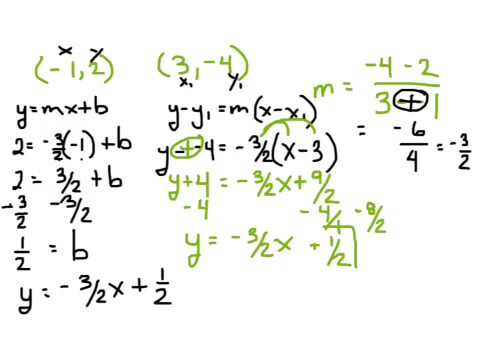 x y
(-1, 2)
y = mx + b
2 = -3/2(-1) + b
2 = 3/2 + b
-3/2 -3/2
1/2 = b
y = -3/2x + 1/2
(3, -4)
x₁ y₁
y - y₁ = m(x - x₁)
y + -4 = -3/2(x - 3)
y + 4 = -3/2x + 9/2
-4 -4/1 -8/2
y = -3/2x + 1/2
m = (-4 - 2)/(3 + 1)
= -6/4 = -3/2